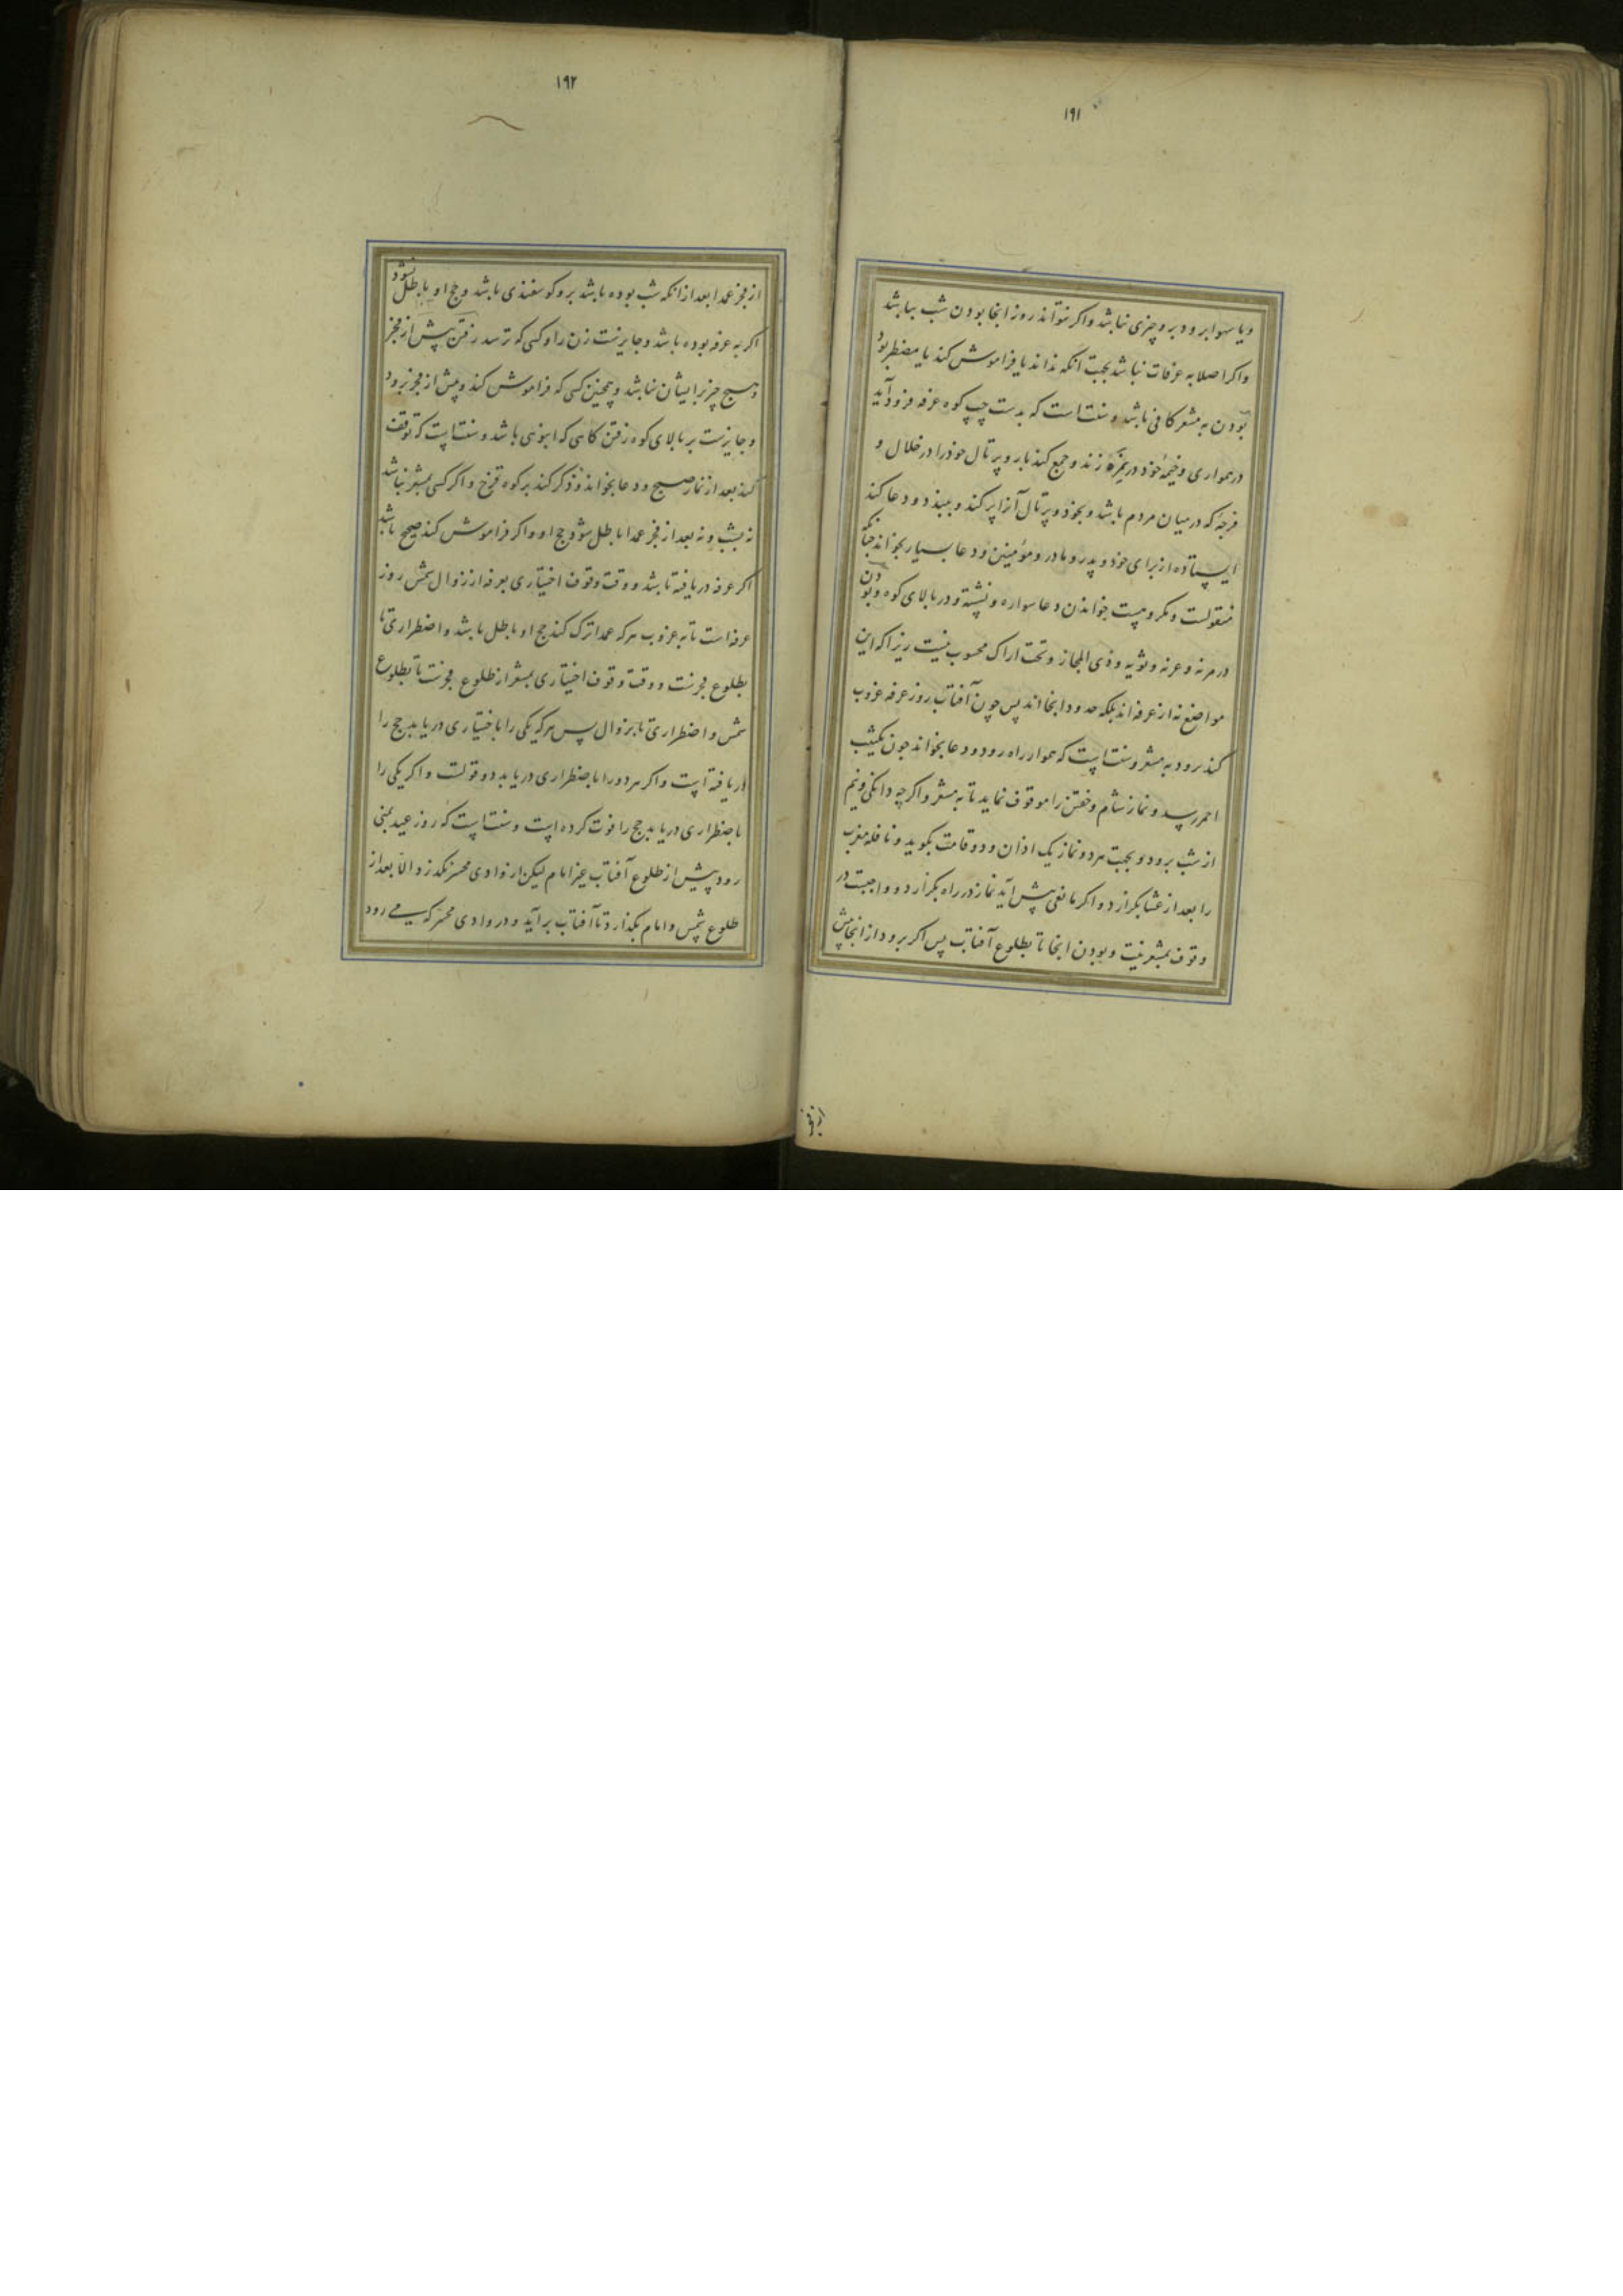 ۱۹۱
ویا سهوا برود برو چیزی نباشد واکر نتواند روز انجا بودن شب بباشد
واکر اصلا به عرفات نباشد بجهت آنکه نداند یا فراموش کند یا مضطر بود
بودن به مشعر کافی باشد و سنت است که بدست چپ کوه عرفه فرود آید
در همواری وخیمهٔ خود در نمره زند وجمع کند بار وپرتال خود را در خلال و
فرجهٔ که در میان مردم باشد وبخود وپرتال آنرا پر کند وببندد ودعا کند
ایستاده از برای خود و پدر و مادر و مؤمنین ودعا بسیار بخواند چنانکه
منقولست ومکروهست خواندن دعا سواره و نشسته و در بالای کوه وبودن
در نمره وعرنه وثویه وذی المجاز وتحت اراک محسوب نیست زیرا که این
مواضع نه از عرفه‌اند بلکه حدود انجااند پس چون آفتاب روز عرفه غروب
کند برود به مشعر وسنت است که هموار راه رود ودعا بخواند چون بکثیب
احمر رسد ونماز شام وخفتن را موقوف نماید تا به مشعر واکرچه دانکی ونیم
از شب برود وبجهت هر دو نماز یک اذان ودو قامت بکوید ونافله مغرب
را بعد از عشا بکزارد واکر مانعی پیش آید نماز در راه بکزارد وواجبست در
وقوف بمشعر نیت وبودن انجا تا بطلوع آفتاب پس اکر برود از انجا پیش
از فجر
۱۹۲
از فجر عمدا بعد از انکه شب بوده باشد برو کوسفندی باشد وحج او باطل نشود
اکر به عرفه بوده باشد وجایزست زن را وکسی که ترسد رفتن پیش از فجر
وهیچ چیز برایشان نباشد وهمچنین کسی که فراموش کند وپیش از فجر برود
وجایزست بر بالای کوه رفتن کاهی که انبوهی باشد وسنت است که توقف
کند بعد از نماز صبح ودعا بخواند وذکر کند بر کوه قزح واکر کسی بمشعر نباشد
نه بشب ونه بعد از فجر عمدا باطل شود حج او واکر فراموش کند صحیح باشد
اکر عرفه دریافته باشد ووقت وقوف اختیاری بعرفه از زوال شمس روز
عرفه است تا به غروب هر که عمدا ترک کند حج او باطل باشد واضطراری تا
بطلوع فجرست ووقت وقوف اختیاری بمشعر از طلوع فجرست تا بطلوع
شمس واضطراری تا بزوال پس هر که یکی را باختیاری دریابد حج را
دریافته است واکر هر دو را باضطراری دریابد دو قولست واکر یکی را
باضطراری دریابد حج را فوت کرده است وسنت است که روز عید بمنی
رود پیش از طلوع آفتاب غیر امام لیکن از وادی محسر نکذرد الا بعد از
طلوع شمس وامام بکذارد تا آفتاب برآید ودر وادی محسر که می رود